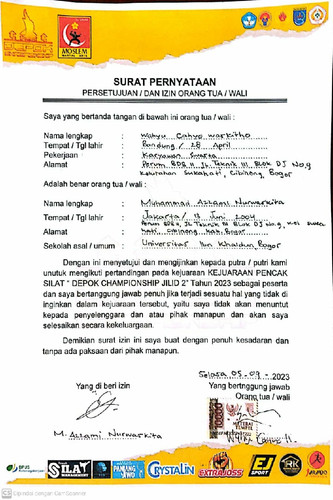 DEPOK
MOSLEM
SURAT PERNYATAAN
PERSETUJUAN / DAN IZIN ORANG TUA / WALI
Saya yang bertanda tangan di bawah ini orang tua / wali :
Nama lengkap : Wahyu Cahyo Warkitho
Tempat / Tgl lahir : Bandung / 28 April
Pekerjaan : Karyawan Swasta
Alamat : Perum BDB II Jl. Teknik III Blok DJ No.9
Kelurahan Sukahati, Cibinong, Bogor
Adalah benar orang tua / wali :
Nama lengkap : Muhammad Azzami Nurwarkita
Tempat / Tgl lahir : Jakarta / Juni 2004
Alamat : Perum BDB II, Jl. Teknik III Blok DJ No.9, kel. Suka
hati Cibinong, Kab. Bogor
Sekolah asal / umum : Universitas Ibn Khaldun Bogor
Dengan ini menyetujui dan mengijinkan kepada putra / putri kami
unutuk mengikuti pertandingan pada kejuaraan KEJUARAAN PENCAK
SILAT " DEPOK CHAMPIONSHIP JILID 2" Tahun 2023 sebagai peserta
dan saya bertanggung jawab penuh jika terjadi sesuatu hal yang tidak di
inginkan dalam kejuaraan tersebut, yaitu saya tidak akan menuntut
kepada penyelenggara dan atau pihak manapun dan akan saya
selesaikan secara kekeluargaan.
Demikian surat izin ini saya buat dengan penuh kesadaran dan
tanpa ada paksaan dari pihak manapun.
Selasa 05 - 09 - 2023
Yang di beri izin
Yang bertnggung jawab
Orang tua / wali
METERAI
TEMPEL
M. Azzami Nurwarkita
BPJS
SILAT
MANAGEMENT
CRYSTALIN
EXTRA JOSS
EJ SPORT
RK
CamScanner